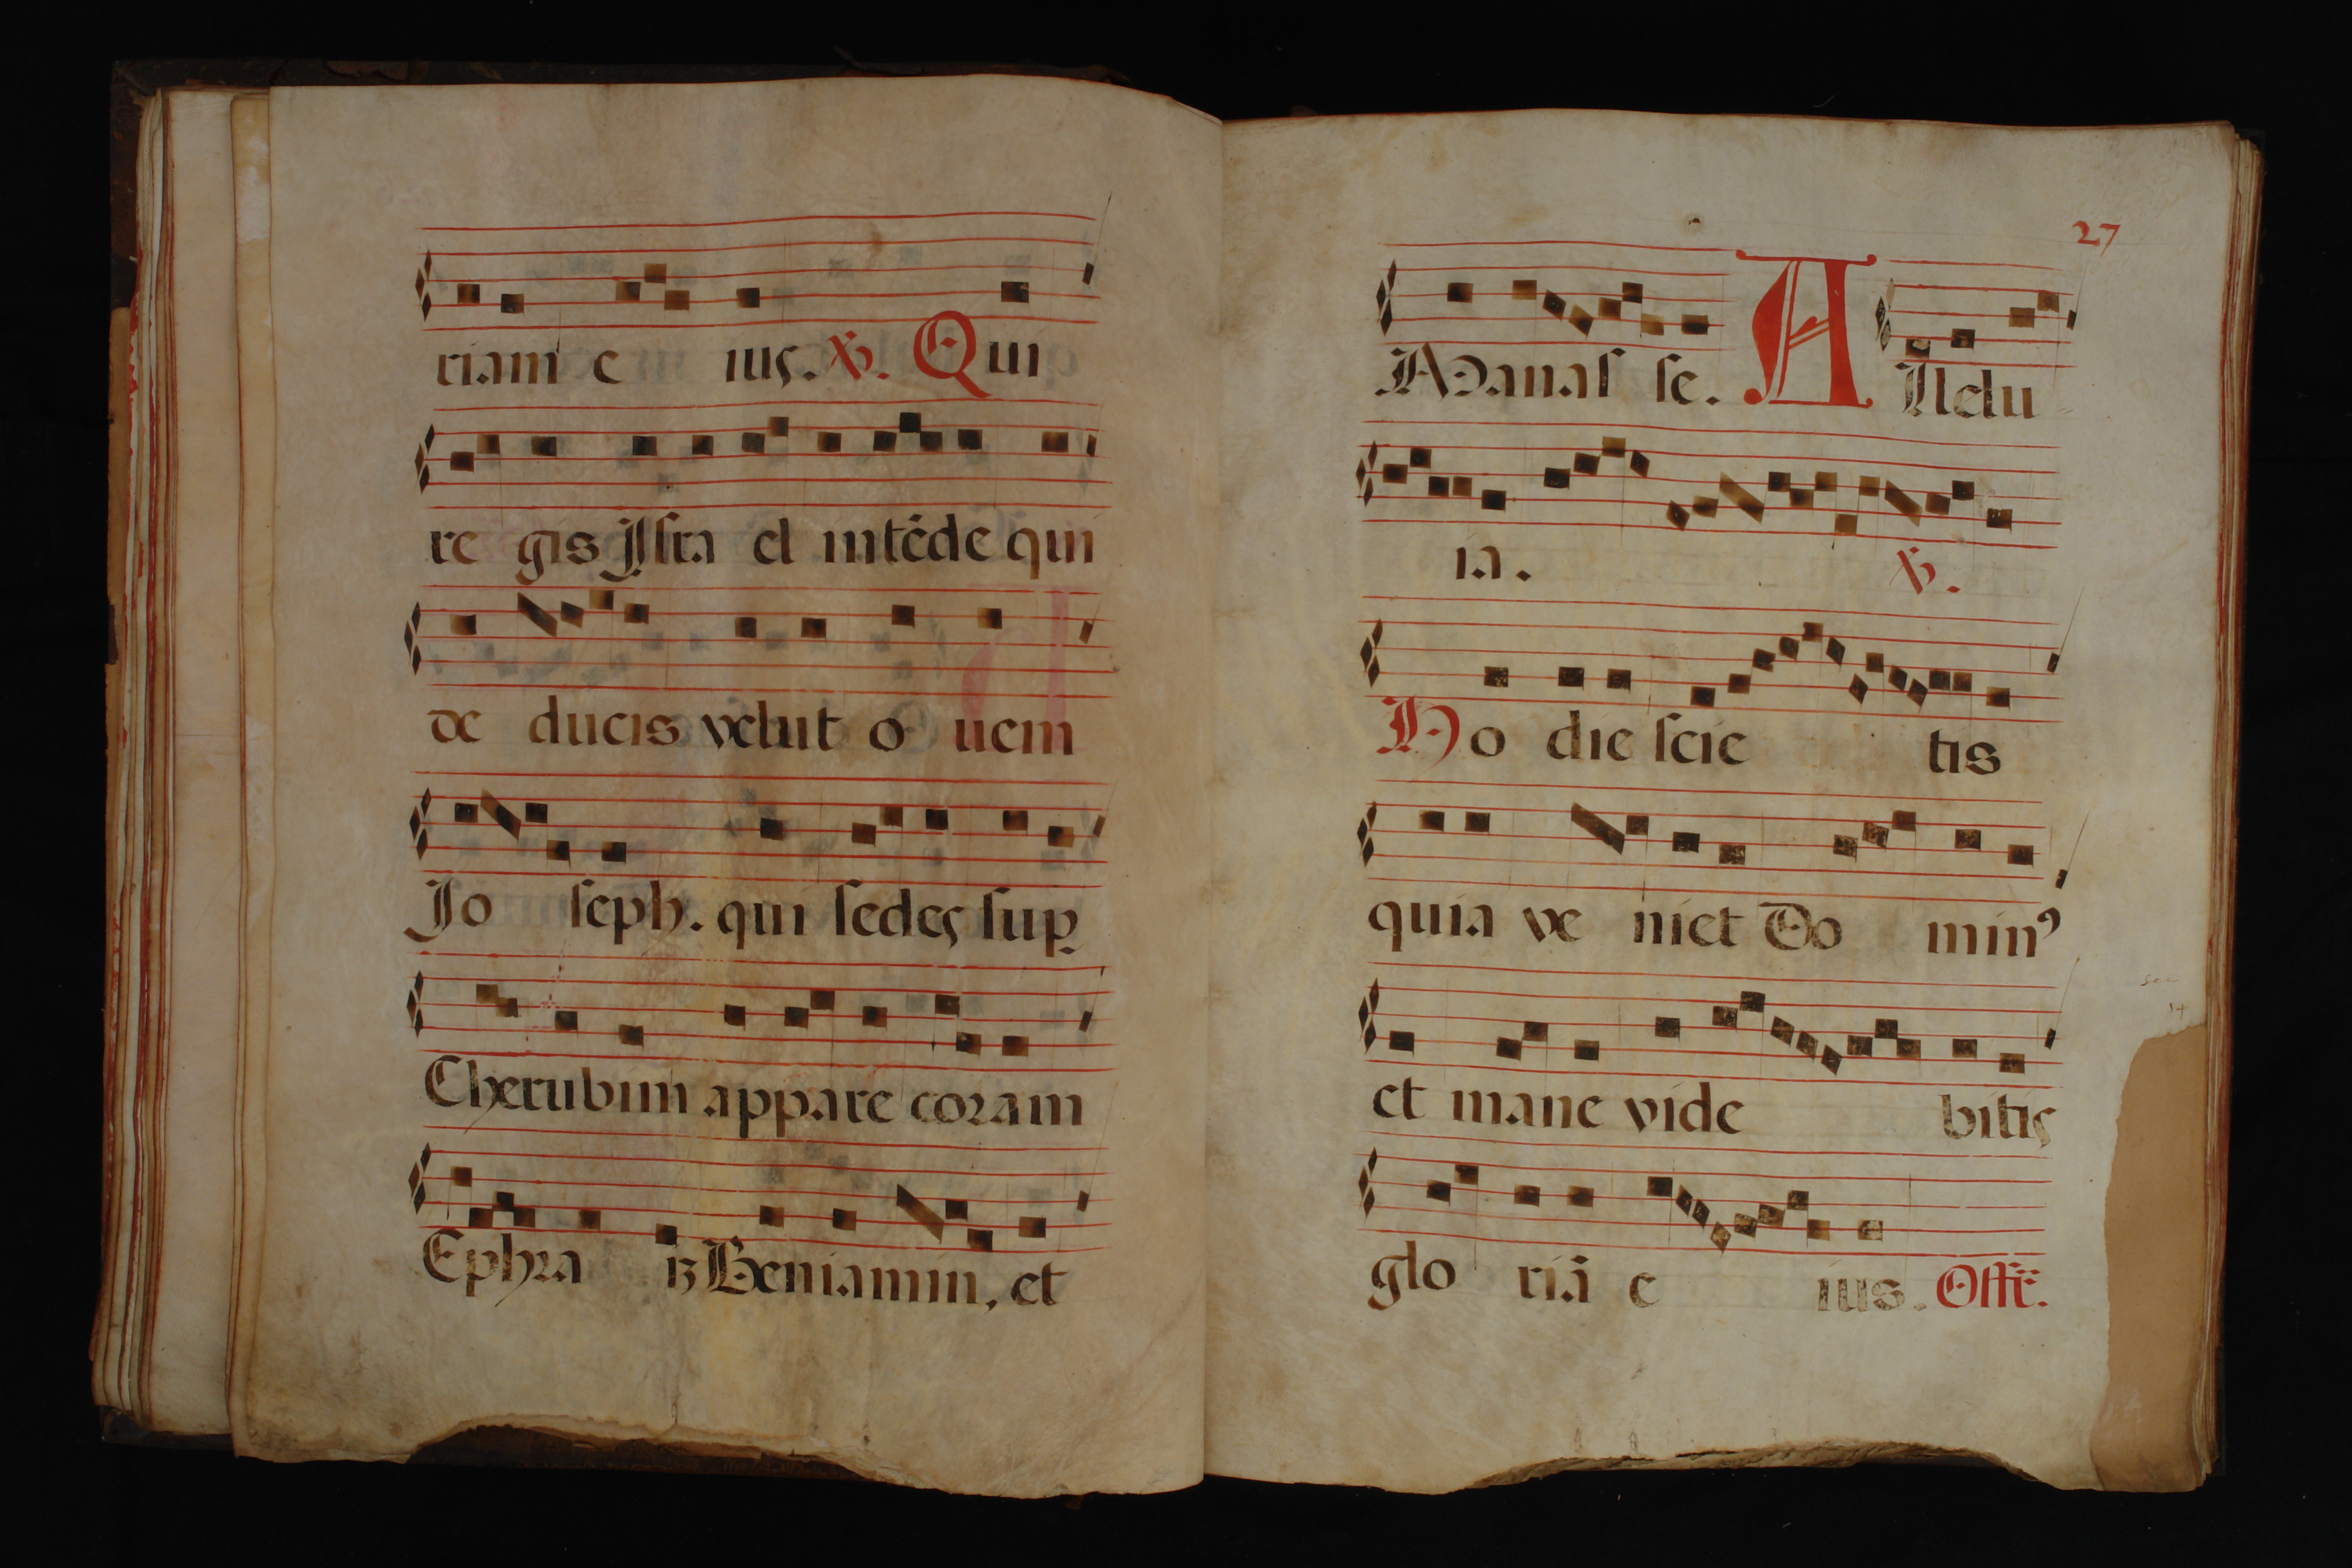 riam e ius. ℣. Qui
re gis Isra el intēde qui
de ducis velut o uem
Io seph. qui sedes sup̱
Cherubim appare coram
Ephra ꝫ Beniamin, et
27
Manas se. Allelu
ia. ℣.
Ho die scie tis
quia ve niet Do minꝰ
et mane vide bitis
glo riā e ius. Offe.